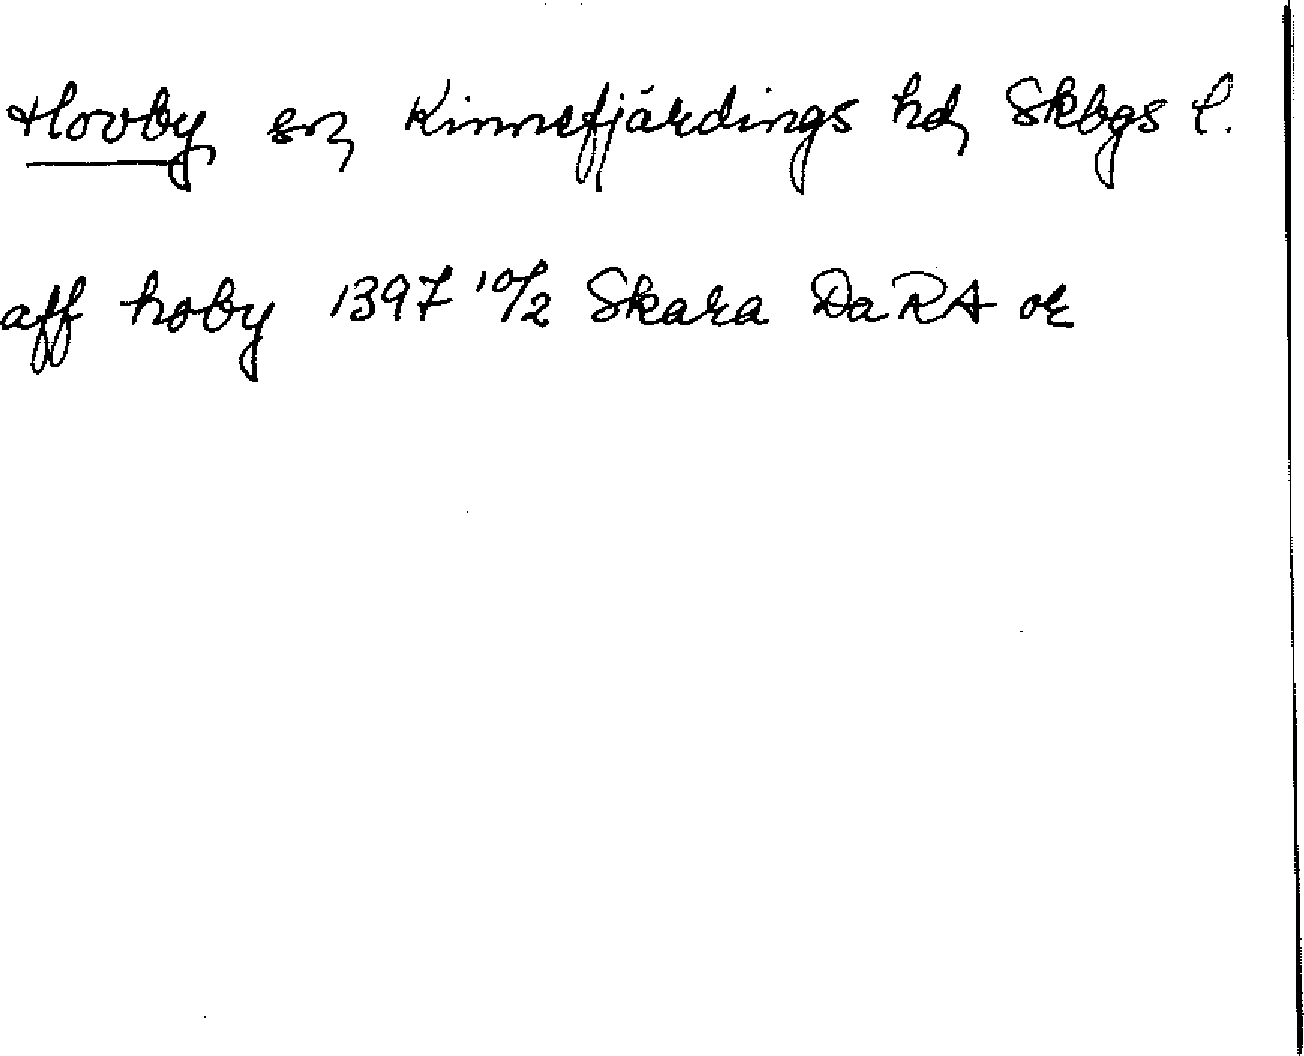 Hovby sn, Kinnefjärdings hd, Skbgs l.
aff hoby 1397 10/2 Skara DaRA or